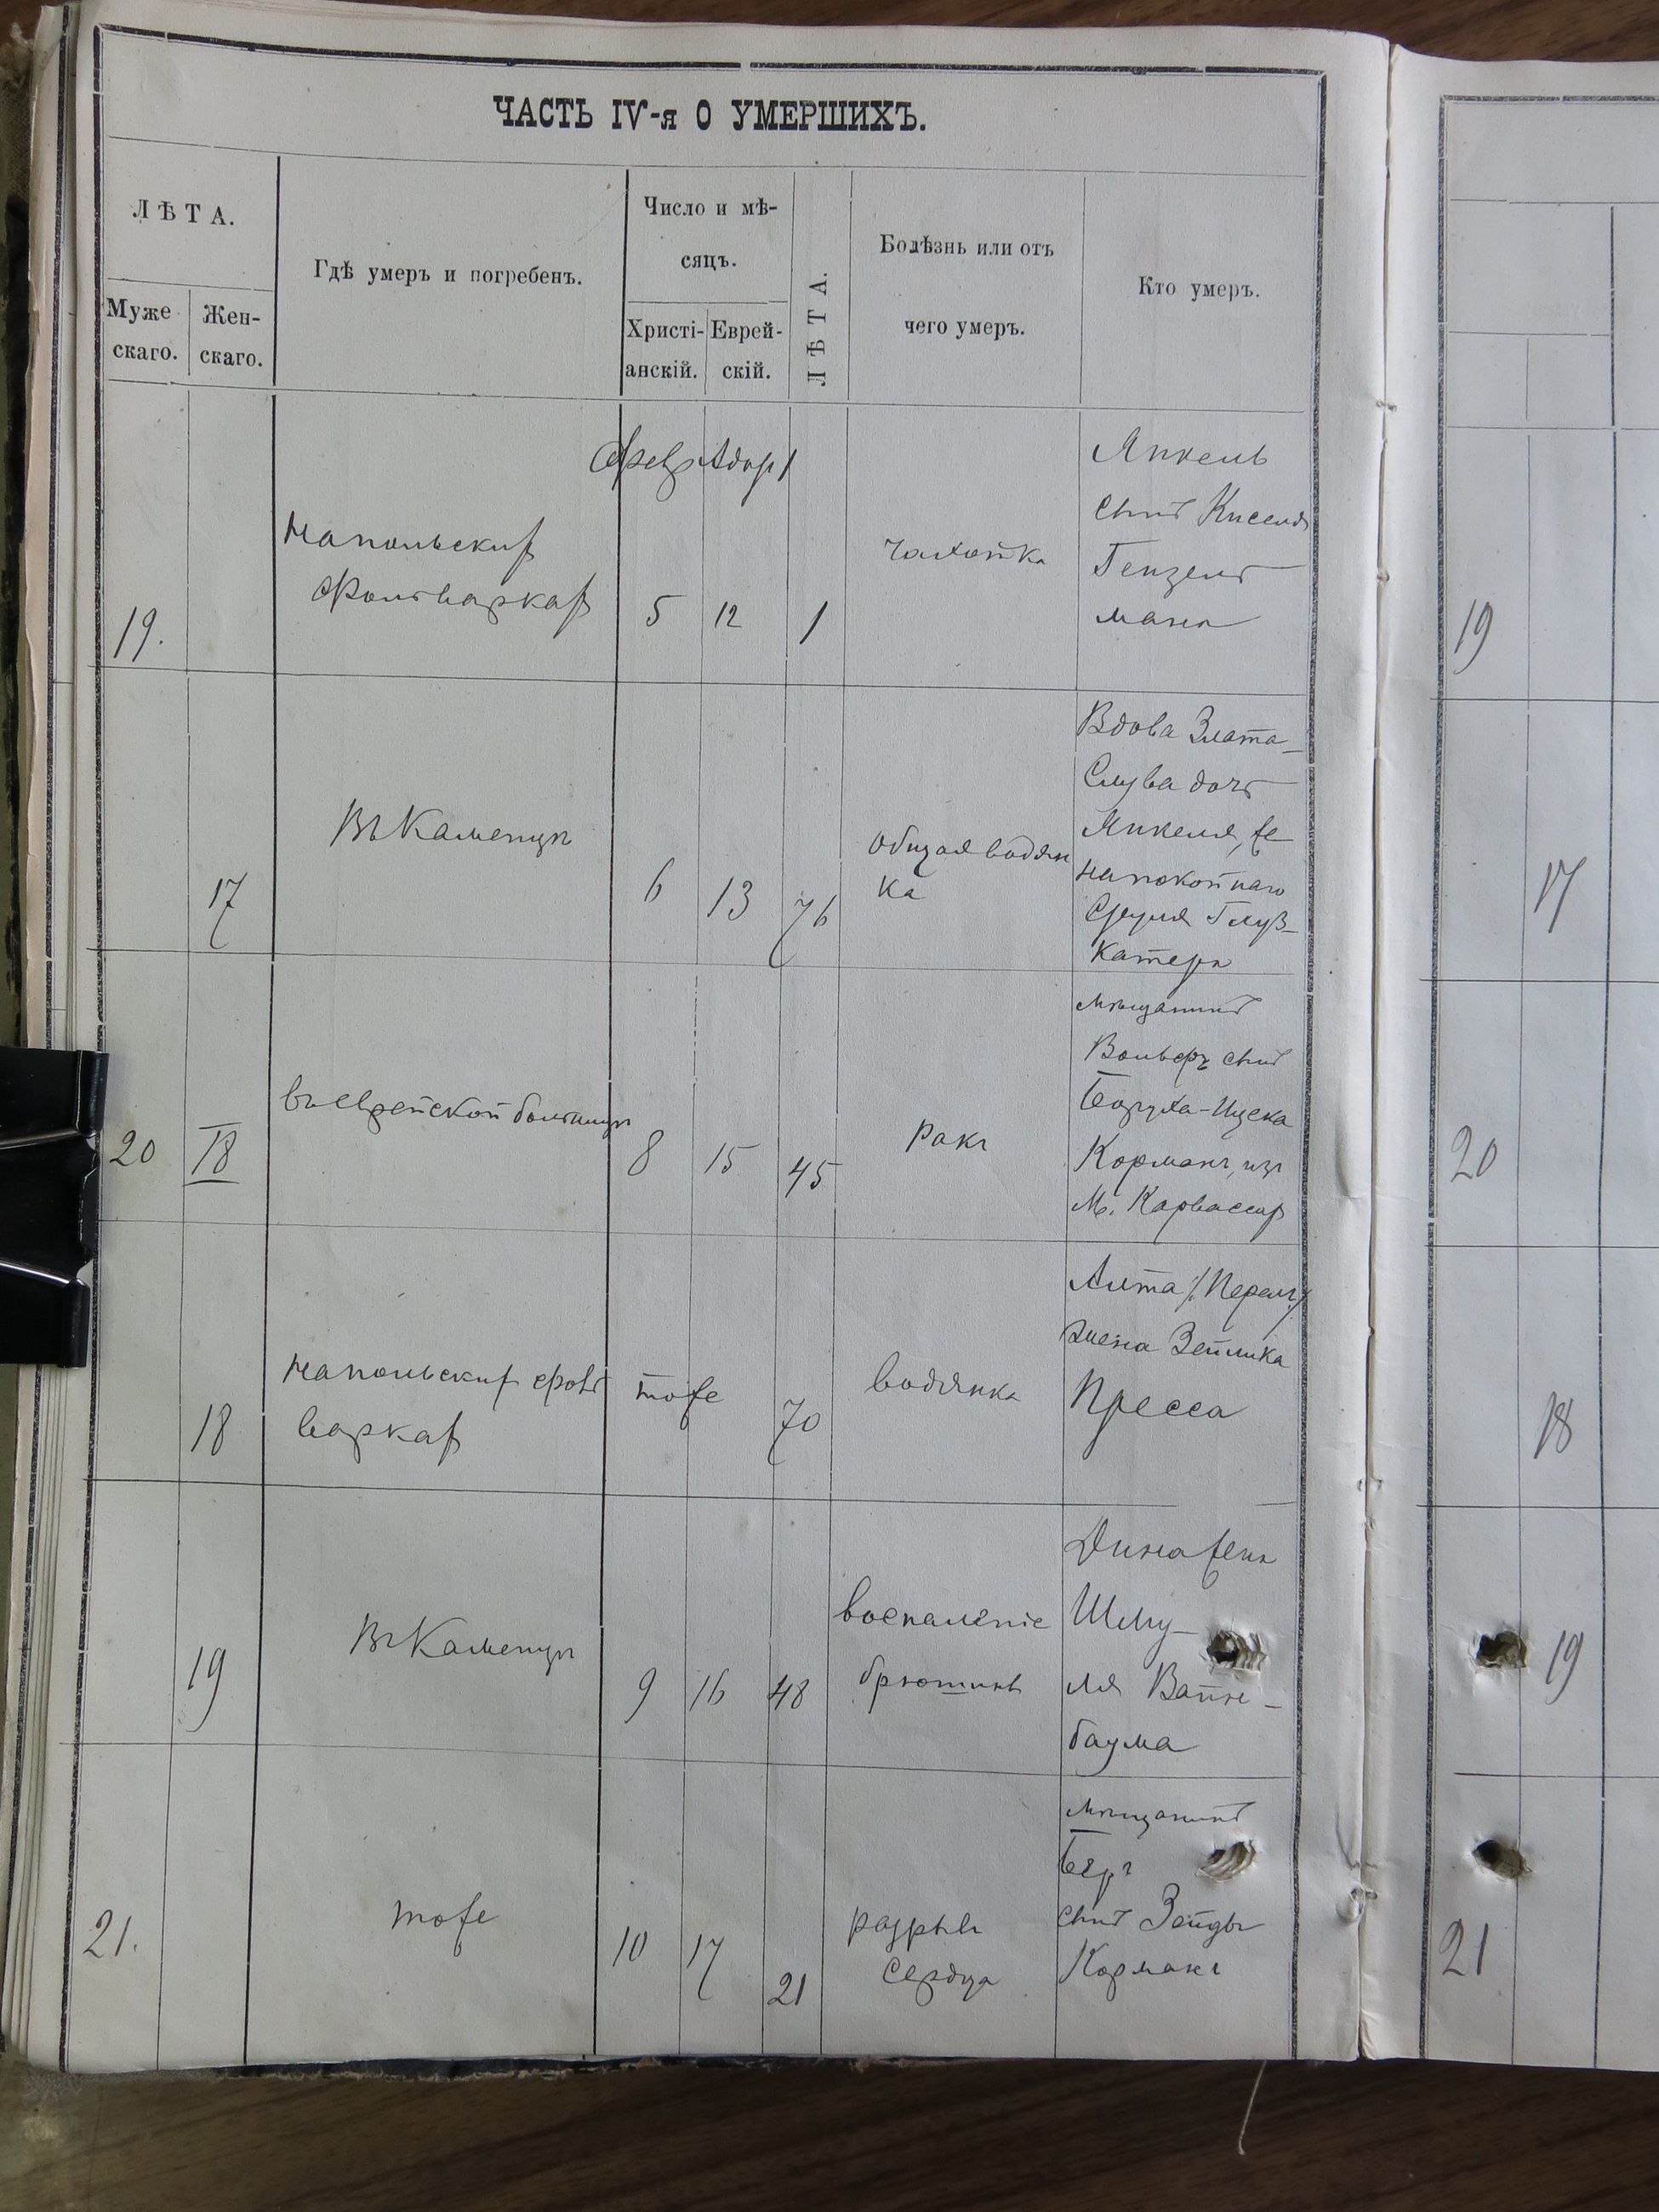 ЧАСТЬ IV-я О УМЕРШИХЪ.
ЛѢТА.
Муже
скаго.
Жен-
скаго.
Гдѣ умеръ и погребенъ.
Число и мѣ-
сяцъ.
Христі-
анскій.
Еврей-
скій.
ЛѢТА.
Болѣзнь или отъ
чего умеръ.
Кто умеръ.
Февр Адар 1
19.
На польских
фольварках
5
12
1
чахотка
Янкель
сынъ Киселя
Гензель
мана
17
Въ Каменцѣ
6
13
76
общая водян
ка
Вдова Злата-
Слува дочь
Янкеля, же
на покойнаго
Сруля Глуз-
катера
20
18
въ еврейской больницѣ
8
15
45
ракъ
мѣщанинъ
Вольфъ сынъ
Боруха-Ицека
Корманъ, изъ
М. Карвассар
18
На польских фоль
варках
тоже
70
водянка
Алта /:Перель:/
жена Зейлика
Пресса
19
Въ Каменцѣ
9
16
48
воспаленіе
брюшины
Дина жена
Шму-
ля Вайн-
баума
21.
тоже
10
17
21
разрывъ
сердца
мѣщанинъ
Беръ
сынъ Зейды
Корманъ
19
17
20
18
19
21